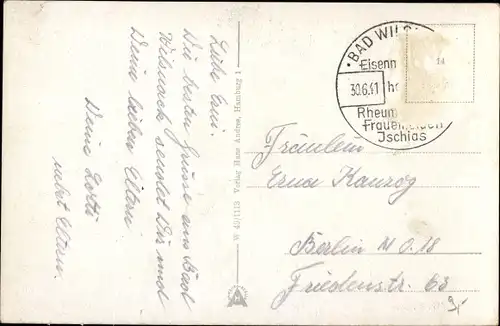 Liebe Erni.
Die besten Grüsse aus Bad
Wilsnack sendet Dir und
Deine lieben Eltern
Deine Lotti
nebst Eltern.
Verlag Hans Andres,
BAD WIL
Eisenm
30.6.41
Rheum
Frauenleiden
Ischias
14
Fräulein
Erna Kanzog
Berlin N.O. 18
Friedenstr. 63